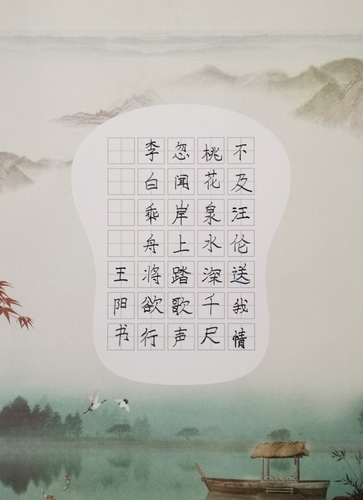 李白乘舟将欲行
忽闻岸上踏歌声
桃花泉水深千尺
不及汪伦送我情
王阳书